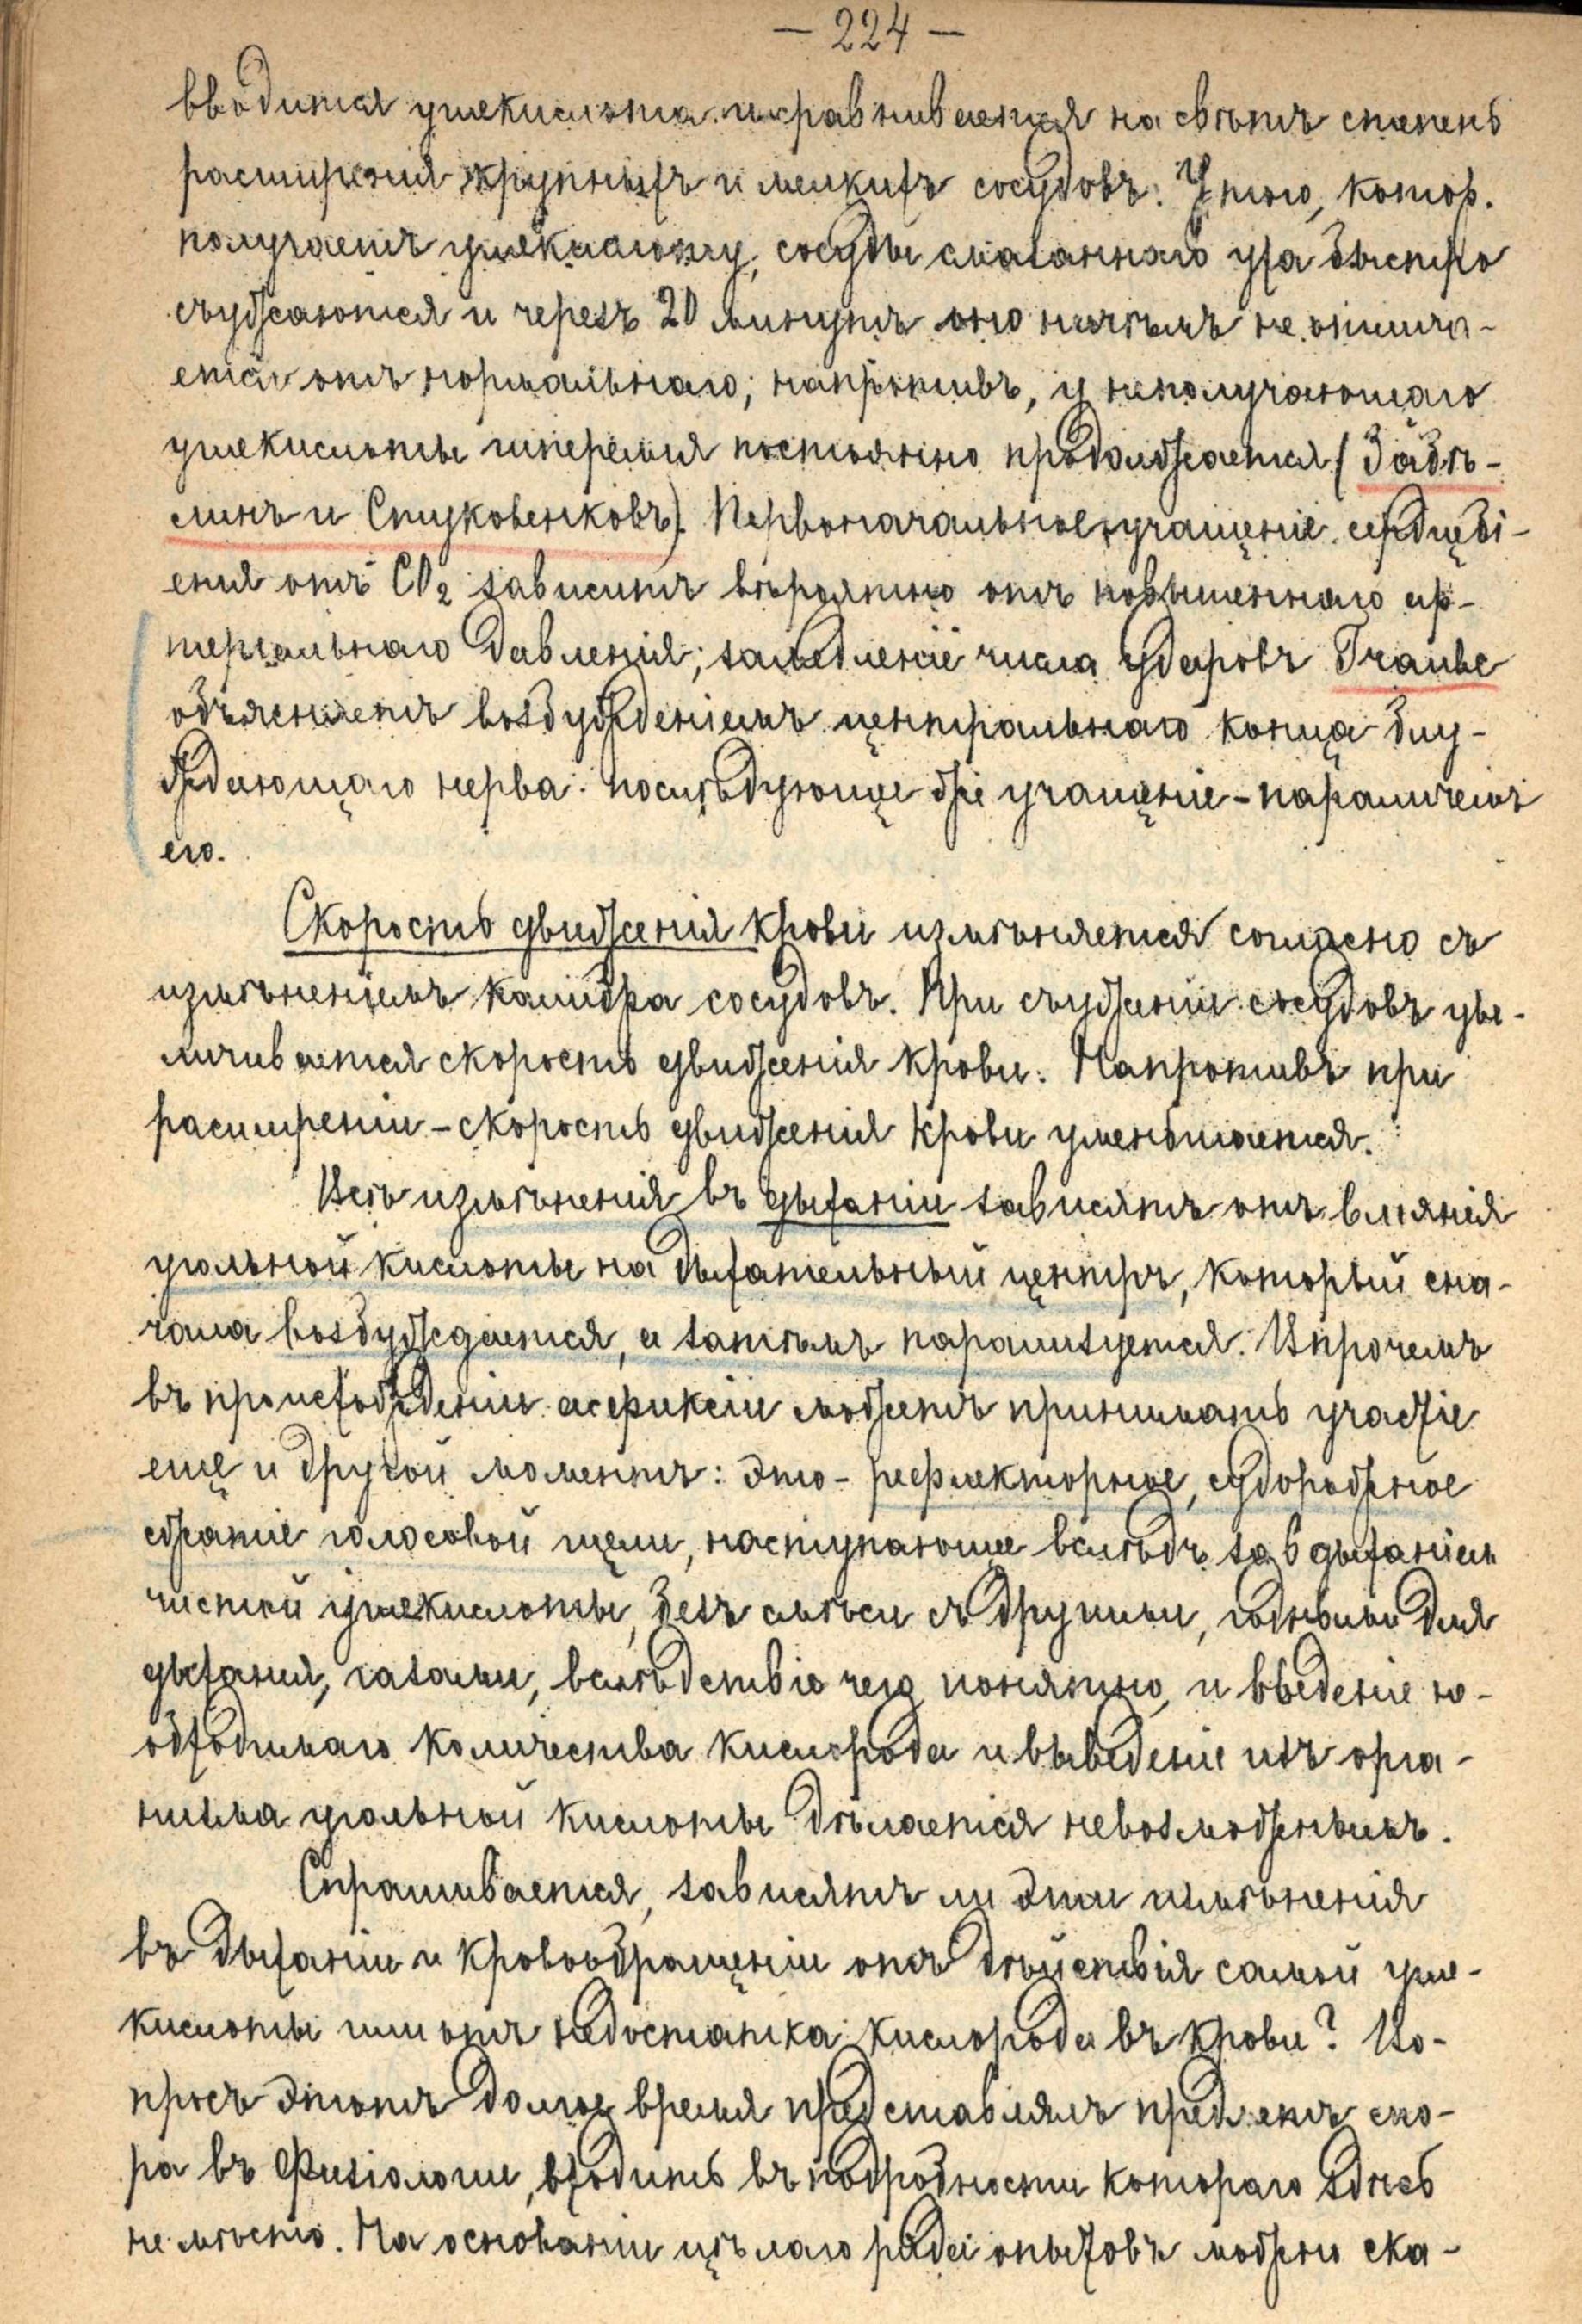 — 224 —
вводится углекислота и сравнивается на свѣтъ степень
расширенія крупныхъ и мелкихъ сосудовъ. У того, котор.
получаетъ углекислоту, сосуды смазаннаго уха быстро
съуживаются и черезъ 20 минутъ оно ничѣмъ не отлича-
ется отъ нормальнаго; напротивъ, у неполучающаго
углекислоты гиперемія постоянно продолжается (Забѣ-
линъ и Стуковенковъ). Первоначальное учащеніе сердцебі-
енія отъ CO₂ зависитъ вѣроятно отъ повышеннаго ар-
теріальнаго давленія; замедленіе числа ударовъ Traube
объясняетъ возбужденіемъ центральнаго конца блу-
ждающаго нерва: послѣдующее же учащеніе – параличемъ
его.
Скорость движенія крови измѣняется согласно съ
измѣненіемъ калибра сосудовъ. При съуженіи сосудовъ уве-
личивается скорость движенія крови. Напротивъ при
расширеніи – скорость движенія крови уменьшается.
Всѣ измѣненія въ дыханіи зависятъ отъ вліянія
угольной кислоты на дыхательный центръ, который сна-
чала возбуждается, а затѣмъ парализуется. Впрочемъ
въ происхожденіи асфиксіи можетъ принимать участіе
еще и другой моментъ: это – рефлекторное, судорожное
сжатіе голосовой щели, наступающее вслѣдъ за вдыханіемъ
чистой углекислоты, безъ смѣси съ другими, годными для
дыханія, газами, вслѣдствіе чего, понятно, и введеніе не-
обходимаго количества кислорода и выведеніе изъ орга-
низма угольной кислоты дѣлается невозможнымъ.
Спрашивается, зависятъ ли эти измѣненія
въ дыханіи и кровообращеніи отъ дѣйствія самой угле-
кислоты или отъ недостатка кислорода въ крови? Во-
просъ этотъ долгое время представлялъ предметъ спо-
ра въ физіологіи, входить въ подробности котораго здѣсь
не мѣсто. На основаніи цѣлаго ряда опытовъ можно ска-